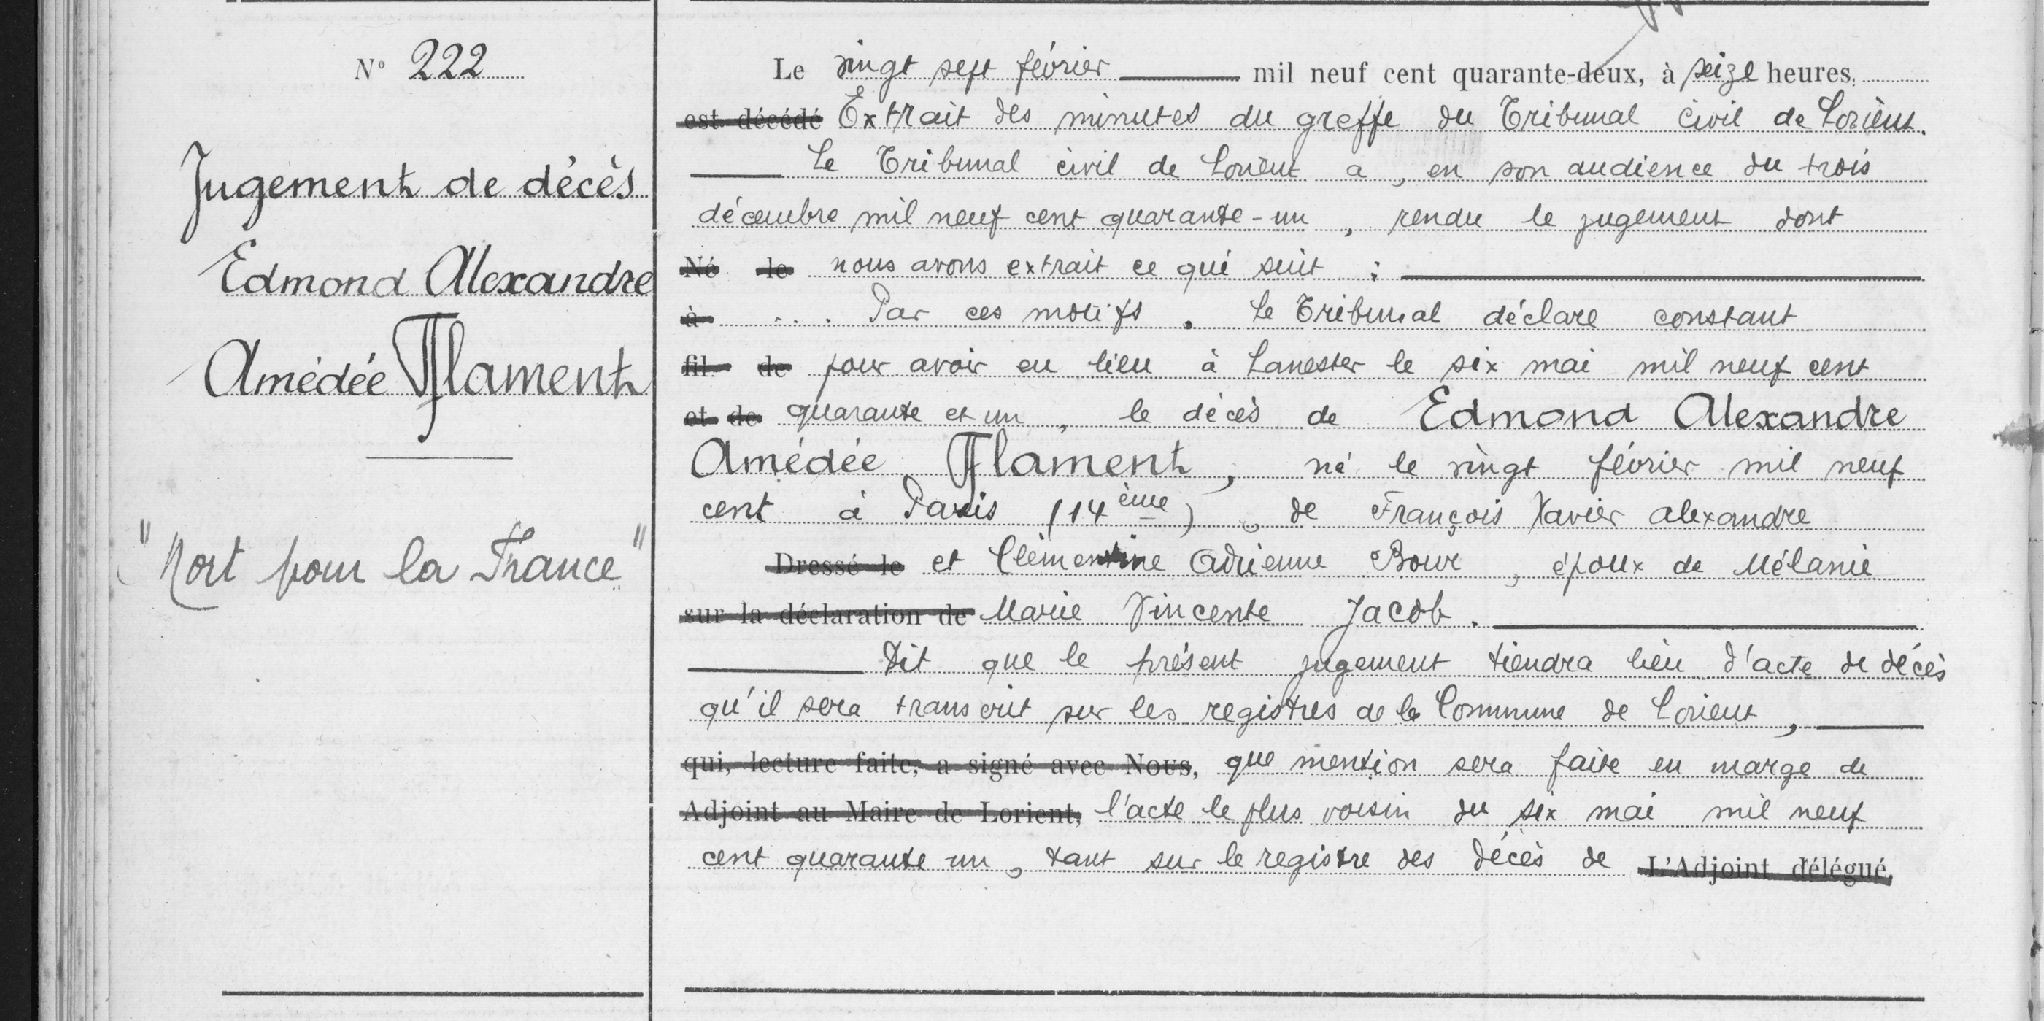 N° 222
Jugement de décès
Edmond Alexandre
Amédée Flament
"Mort pour la France"
Le vingt sept février mil neuf cent quarante-deux, à seize heures,
est décédé Extrait des minutes du greffe du Tribunal civil de Lorient.
Le Tribunal civil de Lorient a, en son audience du trois
décembre mil neuf cent quarante-un, rendu le jugement dont
Né le nous avons extrait ce qui suit :
à ... Par ces motifs. Le Tribunal déclare constant
fil de pour avoir eu lieu à Lanester le six mai mil neuf cent
et de quarante et un, le décès de Edmond Alexandre
Amédée Flament, né le vingt février mil neuf
cent à Paris (14ème), de François Xavier Alexandre
Dressé le et Clémentine Adrienne Bour, époux de Mélanie
sur la déclaration de Marie Vincente Jacob.
Dit que le présent jugement tiendra lieu d'acte de décès
qu'il sera transcrit sur les registres de la Commune de Lorient,
qui, lecture faite, a signé avec Nous, que mention sera faite en marge de
Adjoint au Maire de Lorient, l'acte le plus voisin du six mai mil neuf
cent quarante un, tant sur le registre des décès de L'Adjoint délégué,